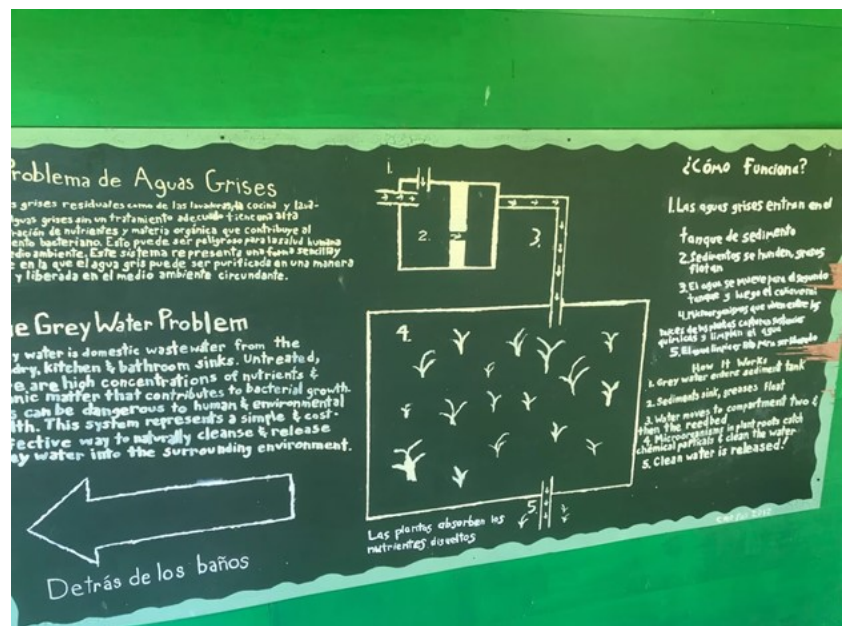 Problema de Aguas Grises
s grises residuales como de las lavadoras, la cocina y lava-
guas grises sin un tratamiento adecuado tiene una alta
ración de nutrientes y materia orgánica que contribuye al
ento bacteriano. Esto puede ser peligroso para la salud humana
edio ambiente. Este sistema representa una forma sencilla y
e en la que el agua gris puede ser purificada en una manera
y liberada en el medio ambiente circundante.
e Grey Water Problem
y water is domestic wastewater from the
dry, kitchen & bathroom sinks. Untreated,
e are high concentrations of nutrients &
anic matter that contributes to bacterial growth.
s can be dangerous to human & environmental
lth. This system represents a simple & cost-
fective way to naturally cleanse & release
y water into the surrounding environment.
Detrás de los baños
1.
2.
3.
4.
5.
Las plantas absorben los
nutrientes disueltos
¿Cómo Funciona?
1. Las aguas grises entran en el
tanque de sedimento
2. Sedimentos se hunden, grasas
flotan
3. El agua se mueve para el segundo
tanque y luego el
4. Microorganismos que viven entre las
raíces de las plantas capturan
químicas y limpian el agua
5. El agua limpia
How It Works
1. Grey water enters sediment tank
2. Sediments sink, greases float
3. Water moves to compartment two &
then the reedbed
4. Microorganisms in plant roots catch
chemical particals & clean the water
5. Clean water is released!